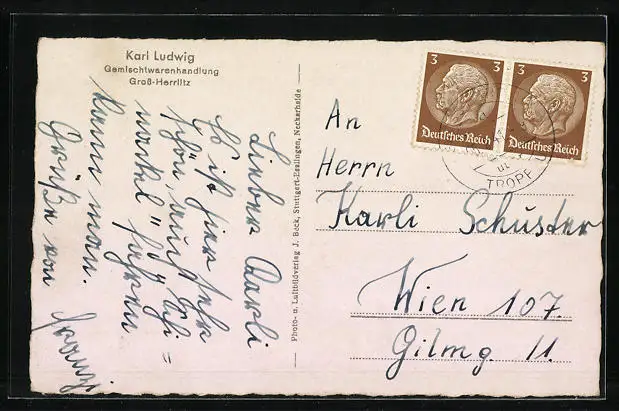 Karl Ludwig
Gemischtwarenhandlung
Groß-Herrlitz
Lieber Karli
Es ist hier sehr
schön, auch Schi=
fahren
kann man.
Grüße von
Photo- u. Luftbildverlag J. Beck, Stuttgart-Esslingen, Neckarhalde
3 3
Deutsches Reich
3 3
Deutsches Reich
TROPP
An
Herrn
Karli Schuster
Wien 107.
Gilmg. 11.